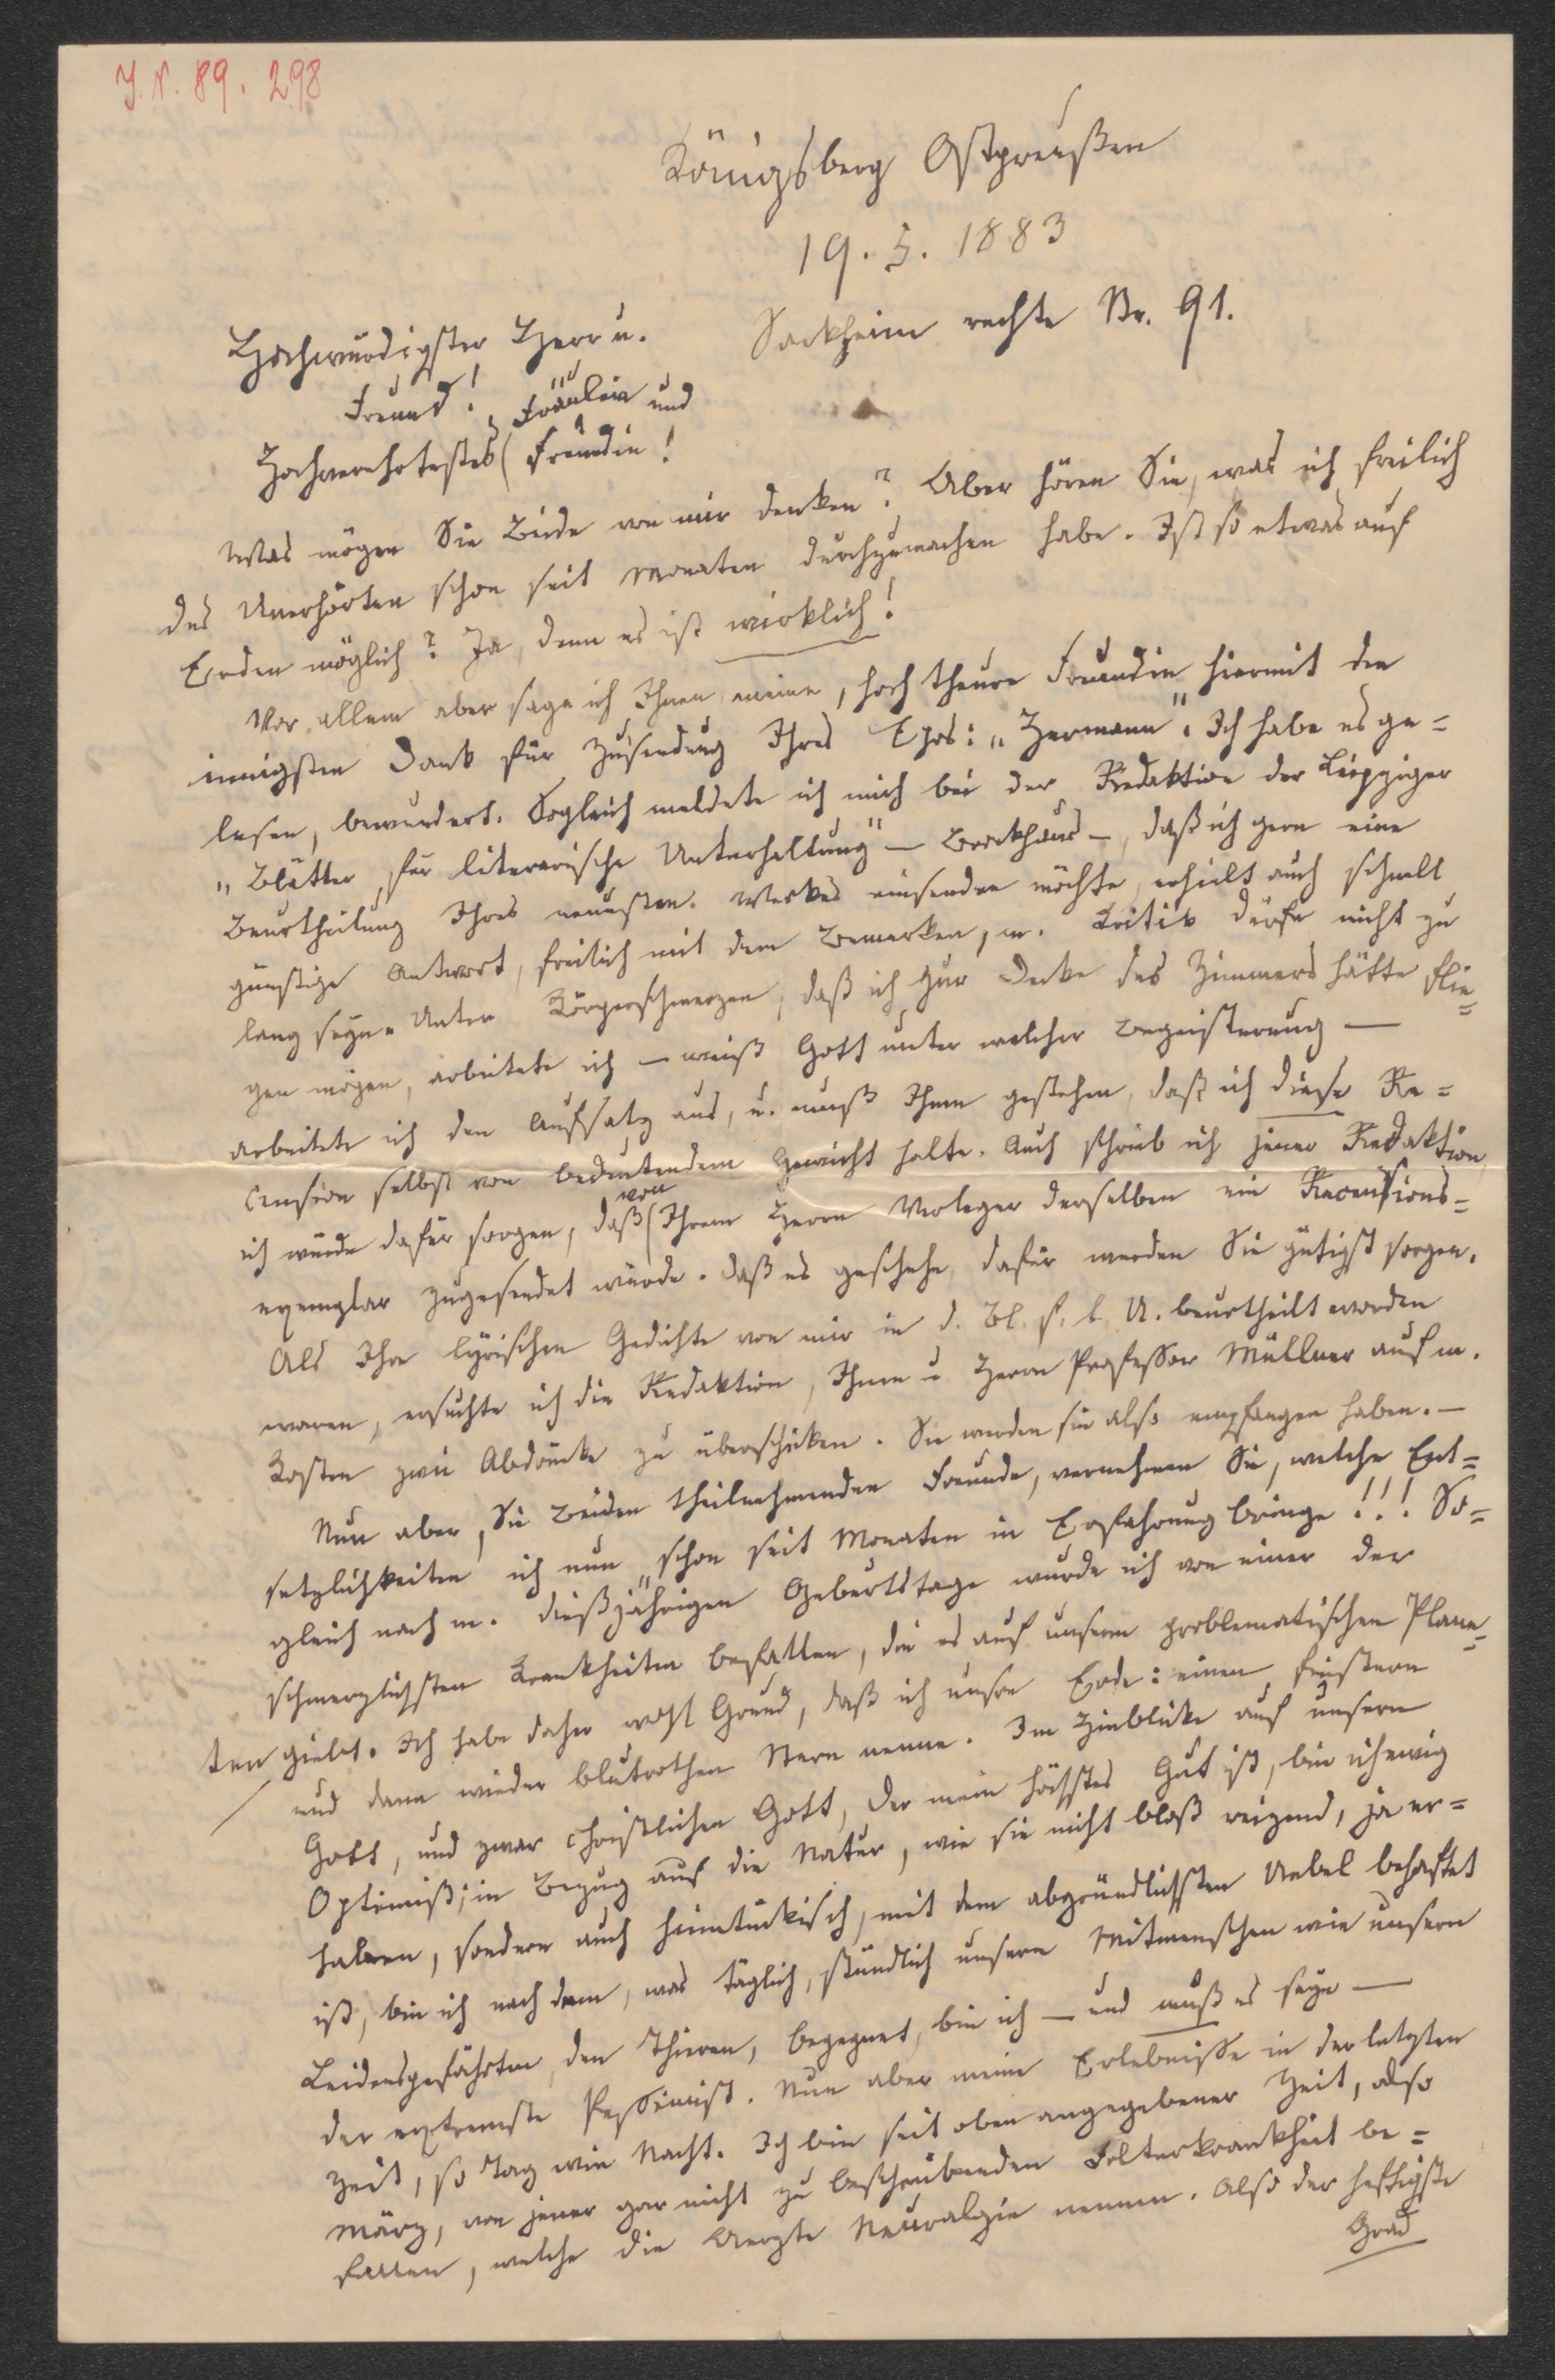 J. N. 89. 298
Königsberg Ostpreußen
19. 5. 1883
Sackheim rechte Str. 91.
Hochwürdigster Herr u.
Freund!
Hochverehrtestes Fräulein und
Freundin!
Was mögen Sie Beide von mir denken? Aber hören Sie, was ich freilich
des Unerhörten schon seit Monaten durchzumachen habe. Ist so etwas auf
Erden möglich? Ja, denn es ist wirklich!
Vor allem aber sage ich Ihnen meine, hoch theure Freundin hiermit den
innigsten Dank für Zusendung Ihres Epos: „Hermann“. Ich habe es ge=
lesen, bewundert. Sogleich meldete ich mich bei der Redaktion der Leipziger
„Blätter für literarische Unterhaltung“ — Brockhaus —, daß ich gern eine
Beurtheilung Ihres neuesten Werkes einsenden möchte, erhielt auch schnell
günstige Antwort, freilich mit dem Bemerken, m. Kritik dürfe nicht zu
lang seyn. Unter Körperschmerzen, daß ich zur Decke des Zimmers hätte flie=
gen mögen, arbeitete ich — weiß Gott unter welcher Begeisterung —
arbeitete ich den Aufsatz aus, u. muß Ihnen gestehen, daß ich diese Re=
cension selbst von bedeutendem Gewicht halte. Auch schrieb ich jener Redaktion
ich würde dafür sorgen, daß von Ihrem Herrn Verleger derselben ein Recensions=
exemplar zugesendet würde. Daß es geschehe, dafür werden Sie gütigst sorgen.
Als Ihre lyrischen Gedichte von mir in d. Bl. f. l. U. beurtheilt worden
waren, ersuchte ich die Redaktion, Ihnen u Herrn Professor Müllner auf m.
Kosten zwei Abdrücke zu überschicken. Sie werden sie also empfangen haben. —
Nun aber, Sie Beiden theilnehmenden Freunde, vernehmen Sie, welche Ent=
setzlichkeiten ich nun schon seit Monaten in Erfahrung bringe!!! So=
gleich nach m. dießjährigen Geburtstage wurde ich von einer der
schmerzlichsten Krankheiten befallen, die es auf unserm problematischen Plane=
ten giebt. Ich habe daher wohl Grund, daß ich unsre Erde: einen finstern
und dann wieder blutrothen Stern nenne. Im Hinblicke auf unsern
Gott, und zwar christlichen Gott, der mein höchstes Gut ist, bin ich ewig
Optimist; in Bezug auf die Natur, wie sie nicht bloß reizend, ja er=
haben, sondern auch heimtückisch, mit dem abgründlichsten Uebel behaftet
ist, bin ich nach dem, was täglich, stündlich unsern Mitmenschen wie unsern
Leidensgefährten, den Thieren, begegnet, bin ich — und muß es seyn —
der extremste Pessimist. Nun aber meine Erlebnisse in der letzten
Zeit, so Tag wie Nacht. Ich bin seit oben angegebener Zeit, also
März, von jener gar nicht zu beschreibenden Folterkrankheit be=
fallen, welche die Aerzte Neuralgie nennen. Also der heftigste
Grad